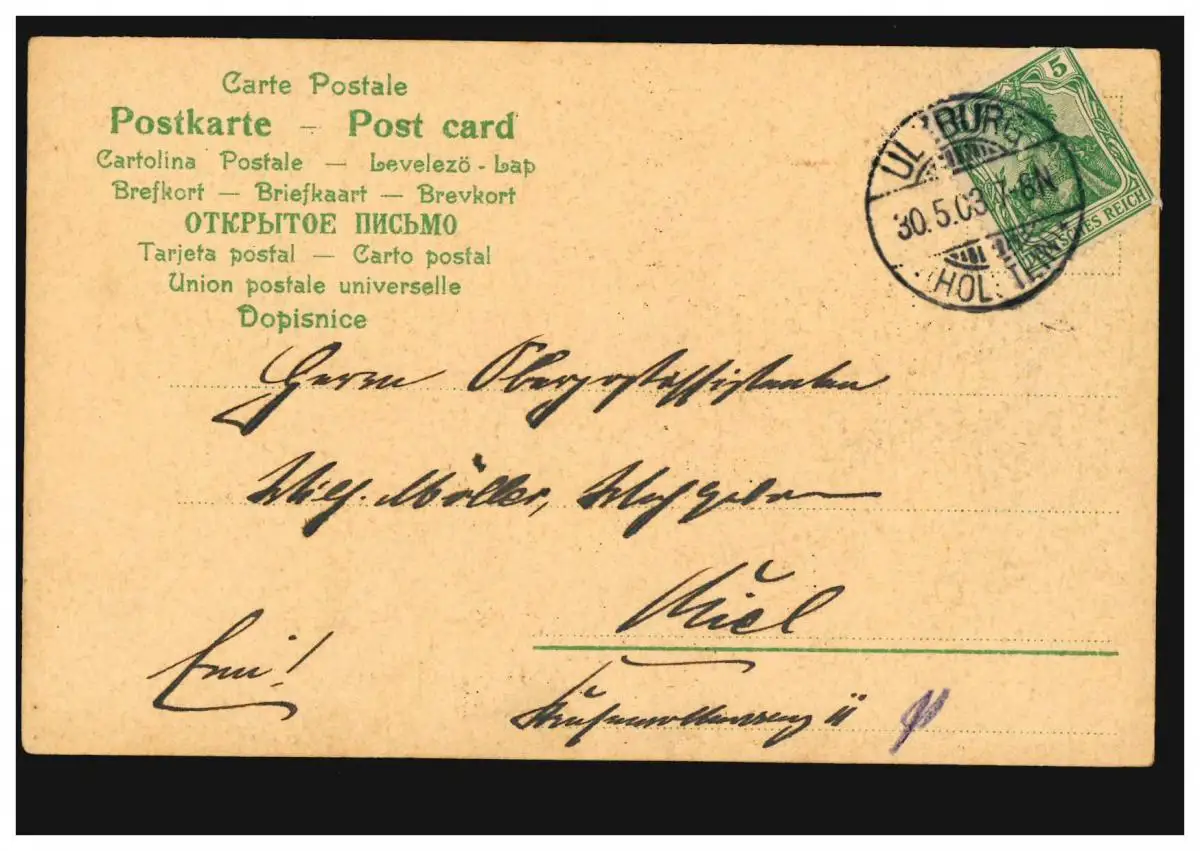 Carte Postale
Postkarte – Post card
Cartolina Postale — Levelezö - Lap
Brefkort — Briefkaart — Brevkort
ОТКРЫТОЕ ПИСЬМО
Tarjeta postal — Carto postal
Union postale universelle
Dopisnice
5
DEUTSCHES REICH
ULZBURG
30.5.03 7-6N
(HOLSTEIN)
Herrn Oberpostassistenten
Wilh. Möller, Wohlgeboren
Kiel